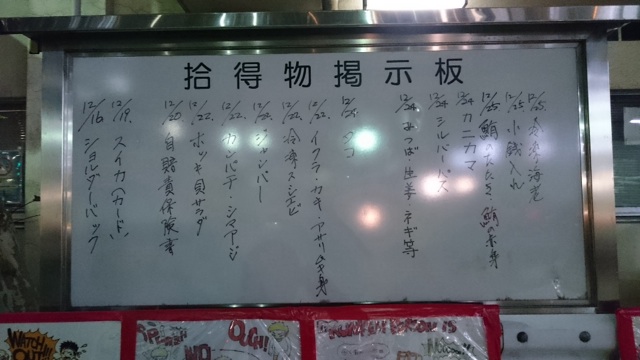 拾得物掲示板
12/25 小銭入れ
12/25 鮪のたたき 鮪の赤身
12/24 カニカマ
12/24 シルバーパス
12/24 みつば 生姜 ネギ等
タコ
12/22 イクラ・カキ・アサリムキ身
12/22 冷凍スシエビ
ジャンパー
12/22 カンパチ・シマアジ
12/22 ホッキ貝サラダ
12/20 自賠責保険書
12/19 スイカ(カード)
12/16 ショルダーバック
WATCH OUT!!
OUCH!
NO